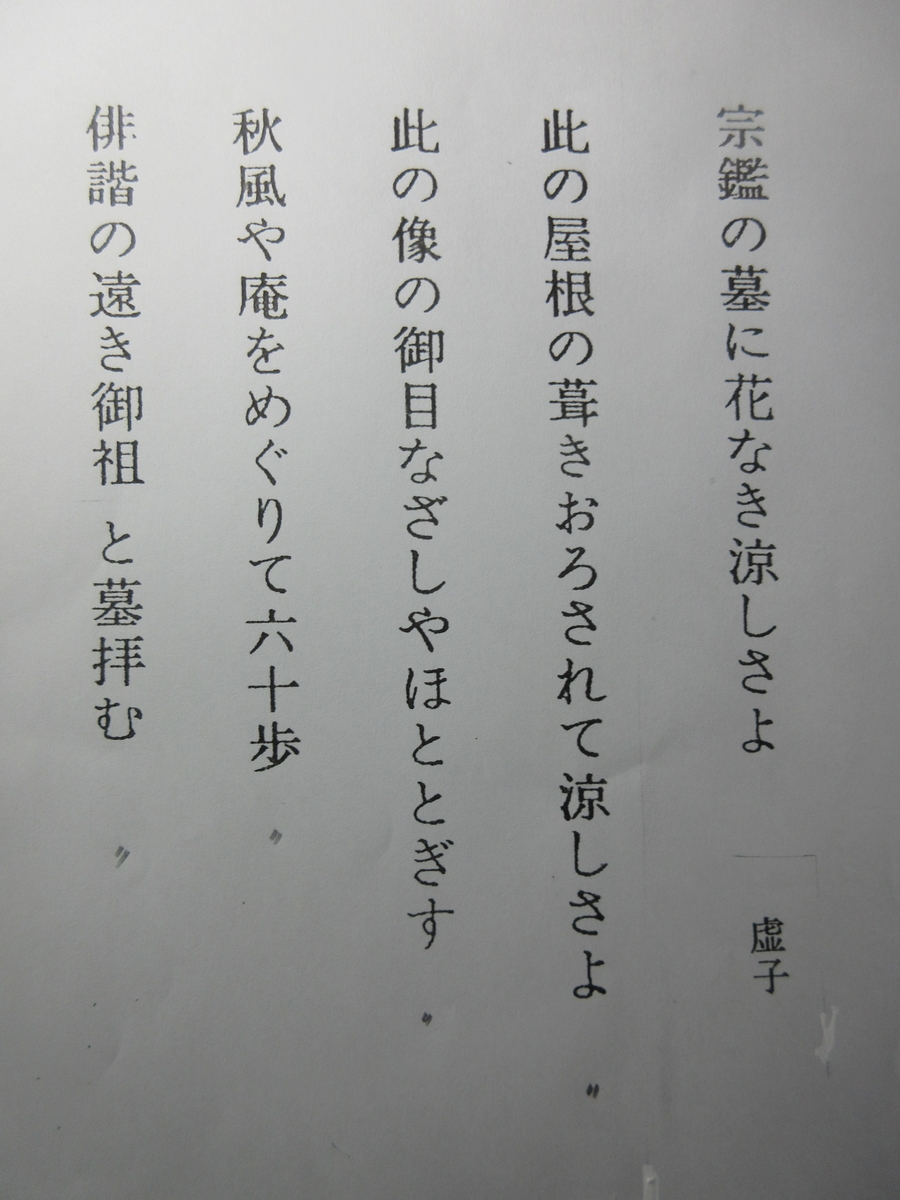 宗鑑の墓に花なき涼しさよ 虚子
此の屋根の葺きおろされて涼しさよ 〃
此の像の御目なざしやほととぎす 〃
秋風や庵をめぐりて六十歩 〃
俳諧の遠き御祖と墓拝む 〃